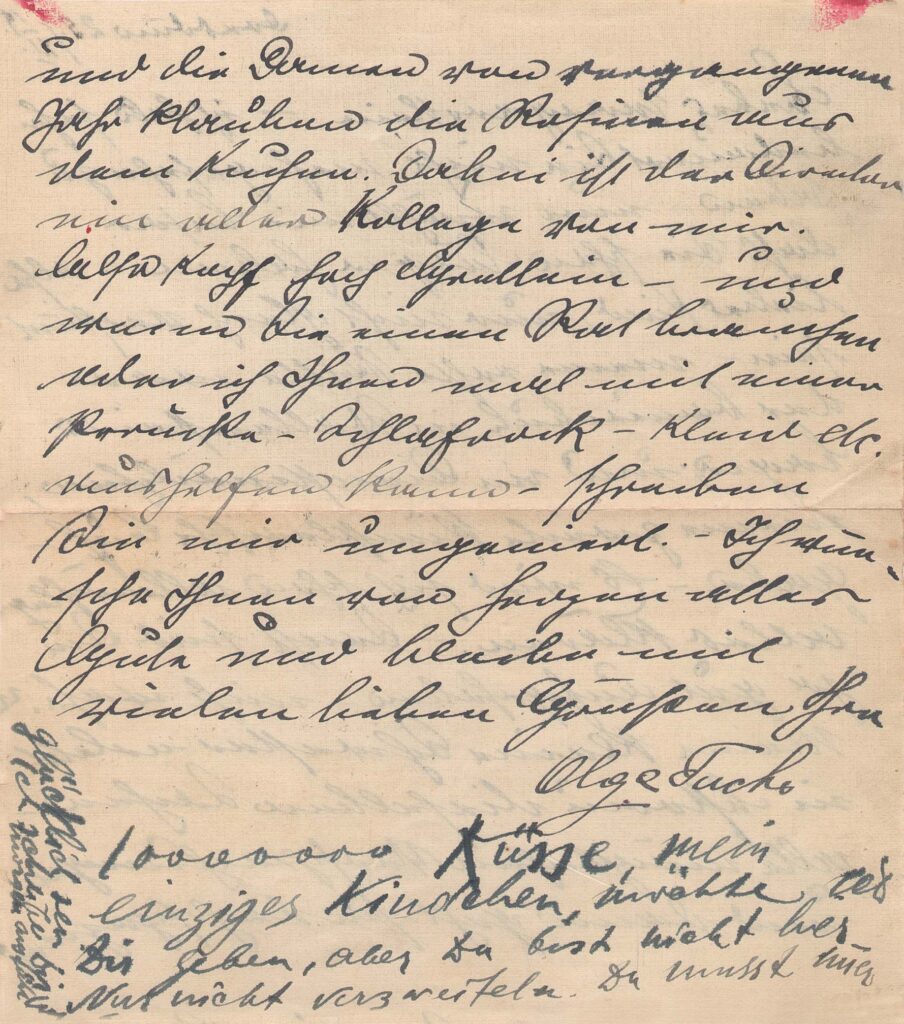 und die Damen von vergangenen
Jahr klauben die Rosinen aus
dem Kuchen. Dabei ist der Director
ein alter Kollege von mir.
Also Kopf hoch Gretlein – und
wenn Sie einen Rat brauchen
oder ich Ihnen mal mit einer
Perücke – Schlafrock – Kleid etc.
aushelfen kann – schreiben
Sie mir ungeniert. – Ich wün-
sche Ihnen von Herzen alles
Gute und bleibe mit
vielen lieben Grüßen Ihre
Olga Fuchs
10000000 Küsse, mein
einziges Kindchen, möchte ich
Dir geben, aber Du bist nicht hier
Nur nicht verzweifeln. Du musst
glücklich sein
Ich schreibe